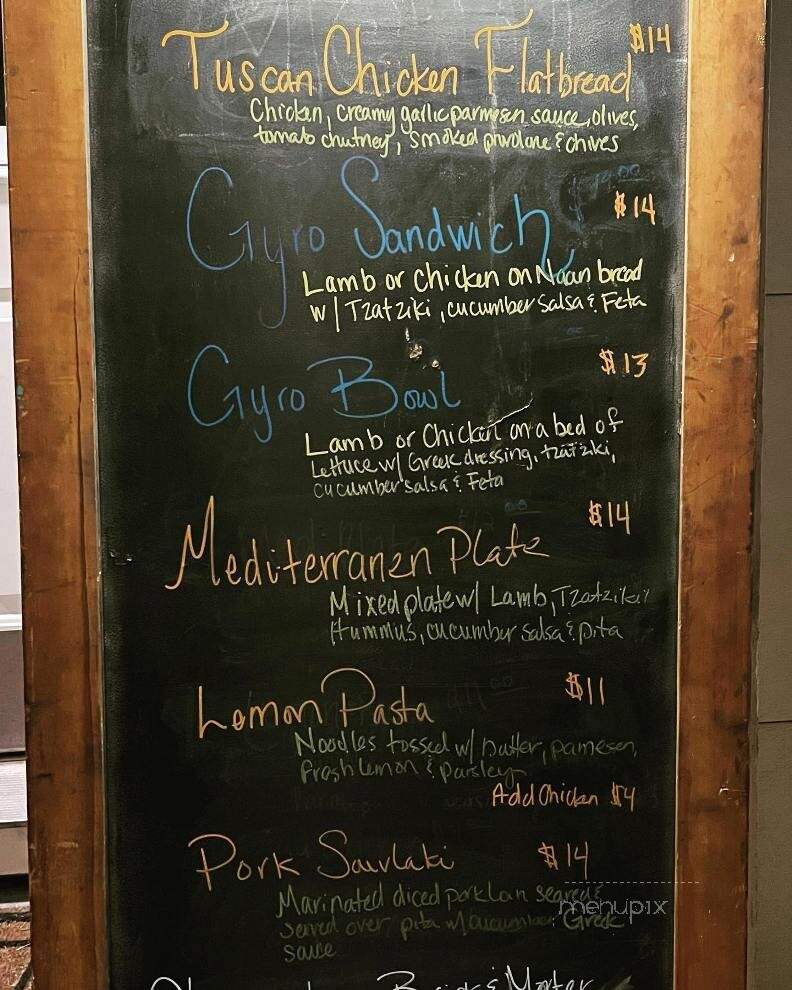 Tuscan Chicken Flatbread $14
Chicken, creamy garlic parmesen sauce, olives,
tomato chutney, smoked provolone & chives
Gyro Sandwich $14
Lamb or chicken on Naan bread
w/ Tzatziki, cucumber salsa & Feta
Gyro Bowl $13
Lamb or Chicken on a bed of
Lettuce w/ Greek dressing, tzatziki,
cucumber salsa & Feta
Mediterranen Plate $14
Mixed plate w/ Lamb, Tzatziki
Hummus, cucumber salsa & pita
Lemon Pasta $11
Noodles tossed w/ butter, pamesen,
fresh lemon & parsley
Add Chicken $4
Pork Souvlaki $14
Marinated diced pork loin seared &
served over pita w/ cucumber Greek
sauce
menupix